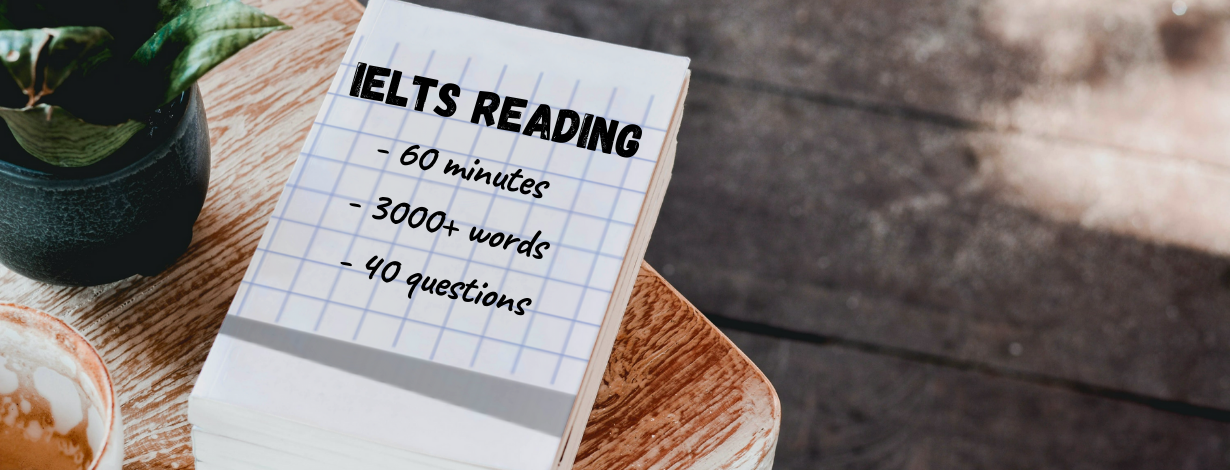 IELTS READING
- 60 minutes
- 3000+ words
- 40 questions